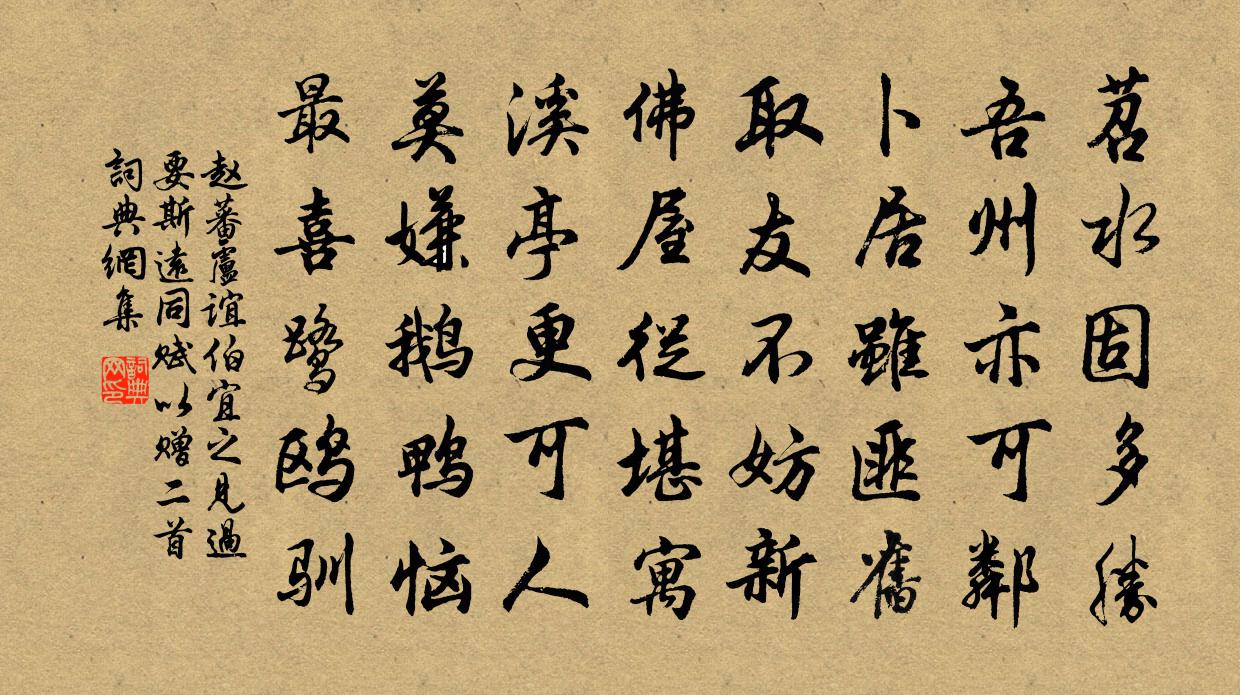 苕水固多勝
吾州亦可鄰
卜居雖匪舊
取友不妨新
佛屋從堪寓
溪亭更可人
莫嫌鹅鸭恼
最喜鹭鸥驯
赵蕃盧誼伯宜之見過
要斯遠同赋以赠二首
詞典網集
詞典网印